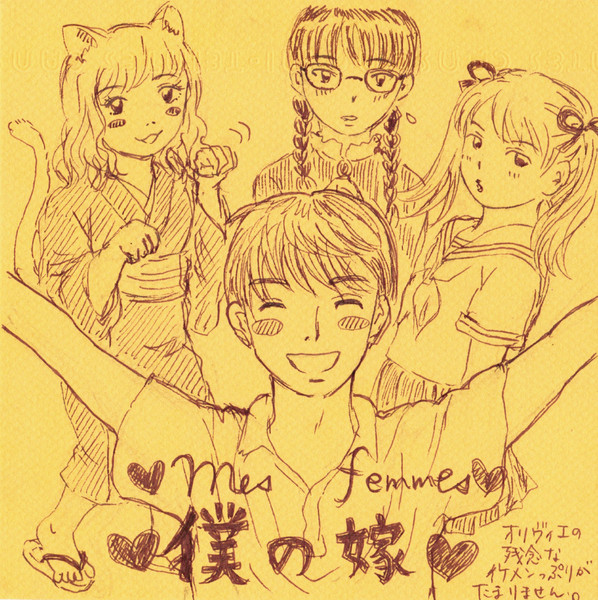 mes femmes
僕の嫁
オリヴィエの
残念な
イケメンっぷりが
たまりません。